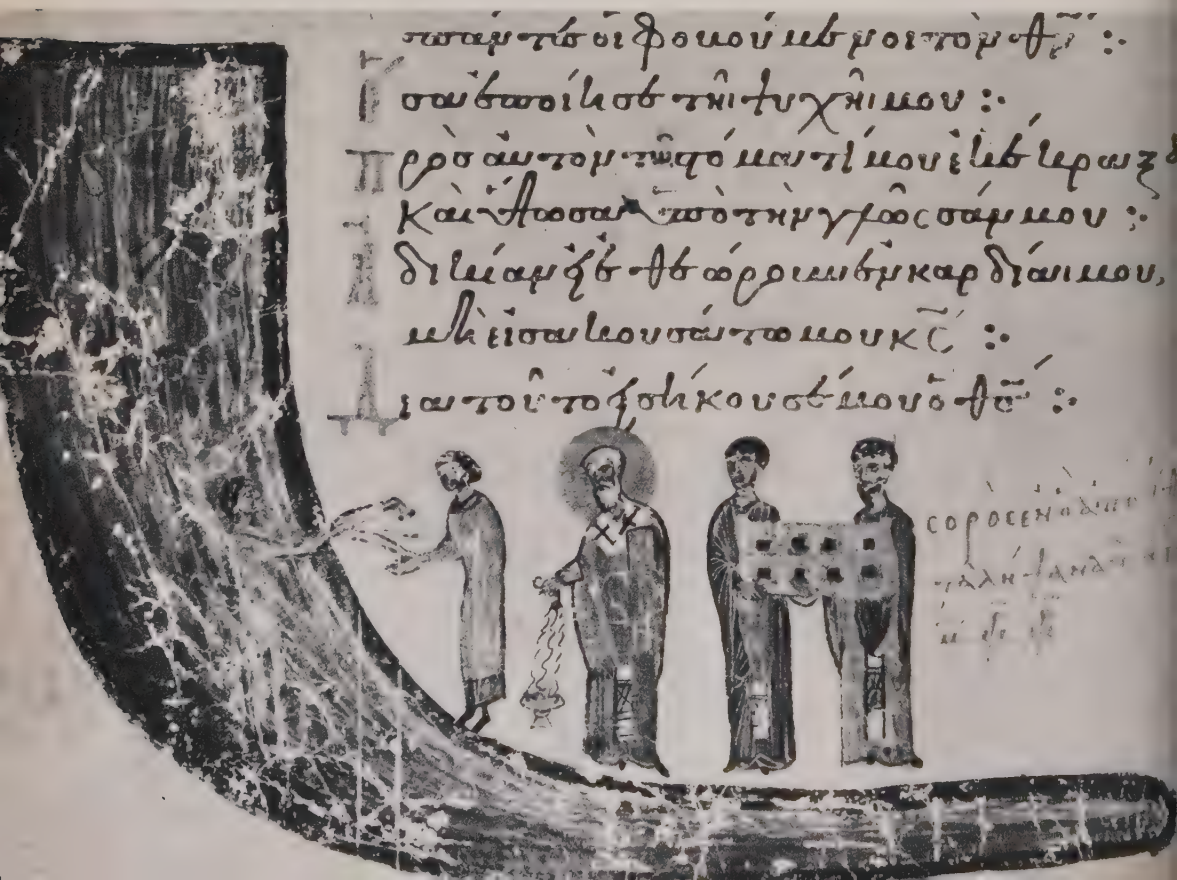 πάντες οἱ φοβούμενοι τὸν θν :·
Ὅσα ἐποίησε τῆι ψυχῆι μου :·
Πρὸς αὐτὸν τῶ στόματί μου ἐκέκραξ
Καὶ ὕψωσα ὑπὸ τὴν γλῶσσάν μου :·
Ἀδικίαν εἰ ἐθεώρουν ἐν καρδίαι μου,
μὴ εἰσακουσάτω μου κς :·
Διατοῦτο εἰσήκουσέ μου ὁ θς :·